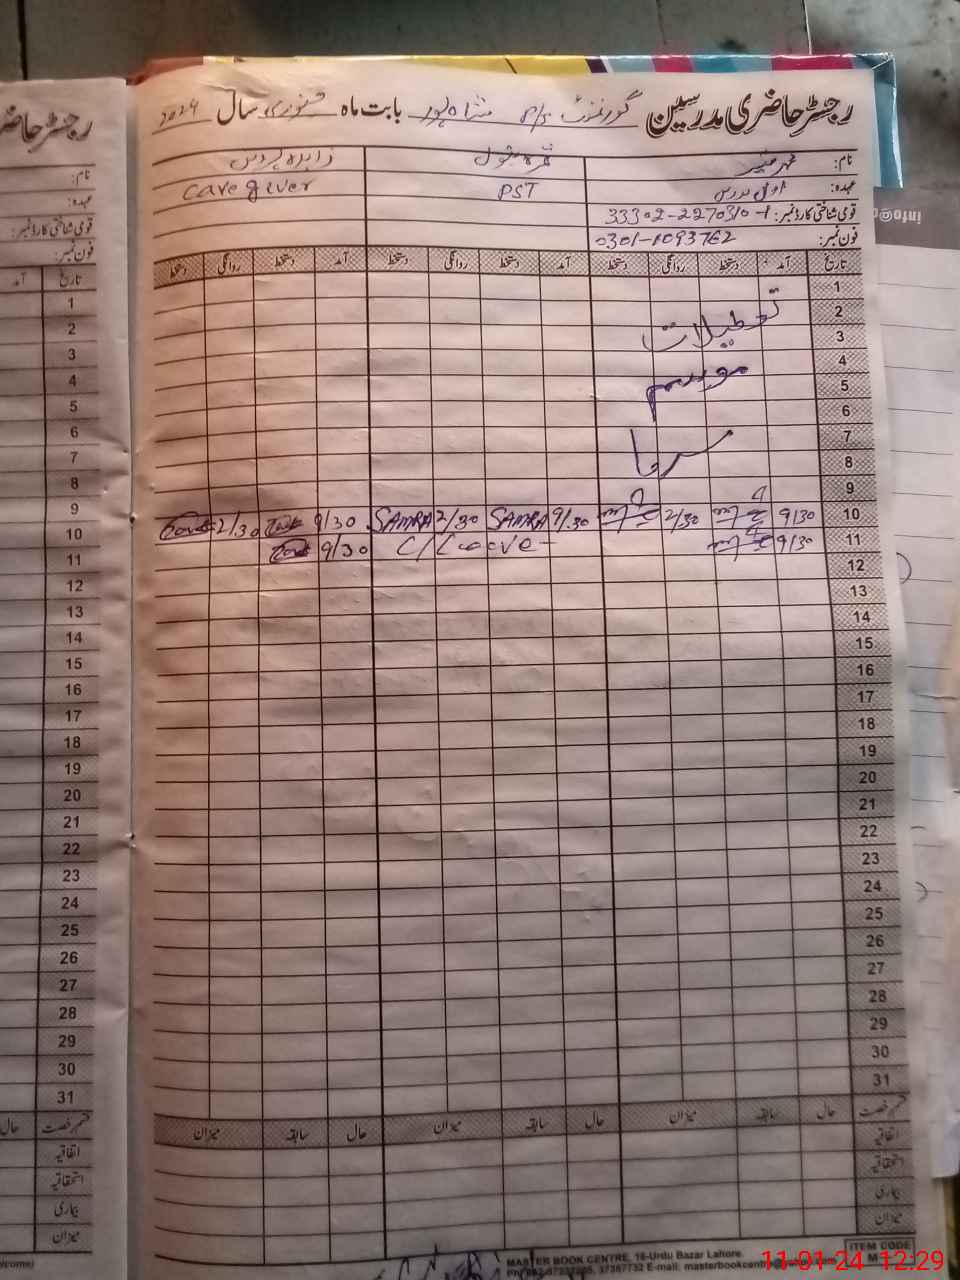 رجسٹر حاضری مدرسین گورنمنٹ P/S شاہ پور بابت ماہ جنوری سال 2024
نام: محمد منیر
زاہدہ پروین
عہدہ: اول مدرس PST care giver
قومی شناختی کارڈ نمبر: 33302-2270310-1
فون نمبر: 0301-1093762
تاریخ آمد دستخط روانگی دستخط آمد دستخط روانگی دستخط آمد دستخط روانگی دستخط
1
2 تعطیلات
3
4 موسم
5
6
7 سرما
8
9
10 9/30 2/30 9/30 SAMRA 2/30 SAMRA 9/30 2/30
11 9/30 C/Leave 9/30
12
13
14
15
16
17
18
19
20
21
22
23
24
25
26
27
28
29
30
31
قسم رخصت حال سابقہ میزان حال سابقہ میزان حال سابقہ میزان
اتفاقیہ
استحقاقیہ
بیماری
میزان
ITEM CODE
MASTER BOOK CENTRE, 16-Urdu Bazar Lahore.
11-01-24 12:29
رجسٹر حاضری
نام:
عہدہ:
قومی شناختی کارڈ نمبر:
فون نمبر:
تاریخ آمد
1
2
3
4
5
6
7
8
9
10
11
12
13
14
15
16
17
18
19
20
21
22
23
24
25
26
27
28
29
30
31
قسم رخصت حال
اتفاقیہ
استحقاقیہ
بیماری
میزان